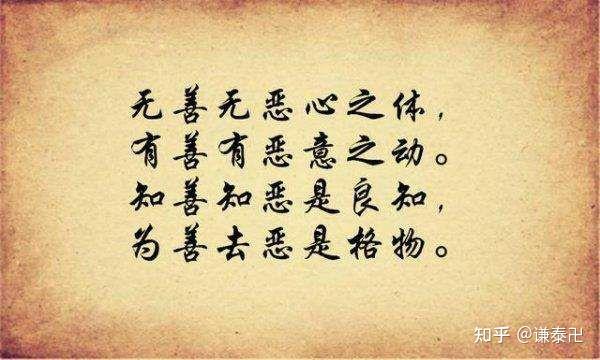 无善无恶心之体，
有善有恶意之动。
知善知恶是良知，
为善去恶是格物。
知乎 @谦泰卍